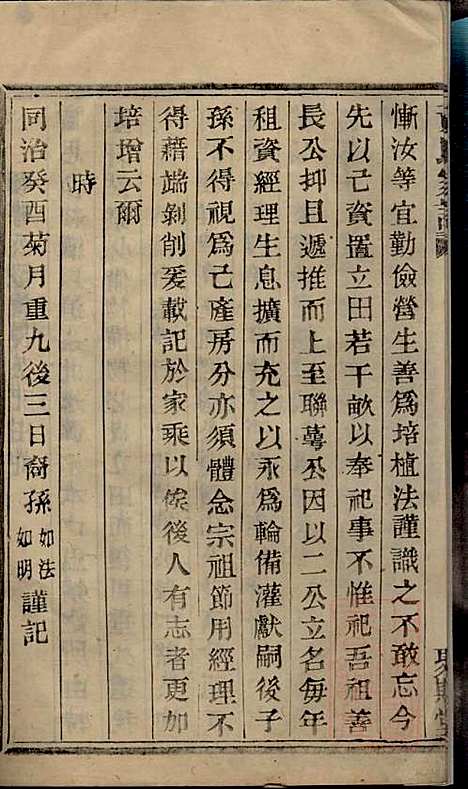 慚汝等宜勤儉營生善爲培植法謹識之不敢忘今
先以己資置立田若干畝以奉祀事不惟祀吾祖善
長公抑且遞推而上至聯萼公因以二公立名每年
租資經理生息擴而充之以永爲輪備灌獻嗣後子
孫不得視爲己產房分亦須體念宗祖節用經理不
得藉端剝削爰載記於家乘以俟後人有志者更加
培增云爾
時
同治癸酉菊月重九後三日裔孫如法如明謹記